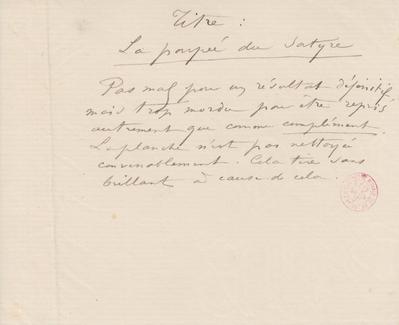 Titre :
La poupée du Satyre
Pas mal pour un résultat définitif
mais trop mordu pour être repris
autrement que comme complément.
La planche n'est pas nettoyée
convenablement. Cela tire sans
brillant à cause de cela.